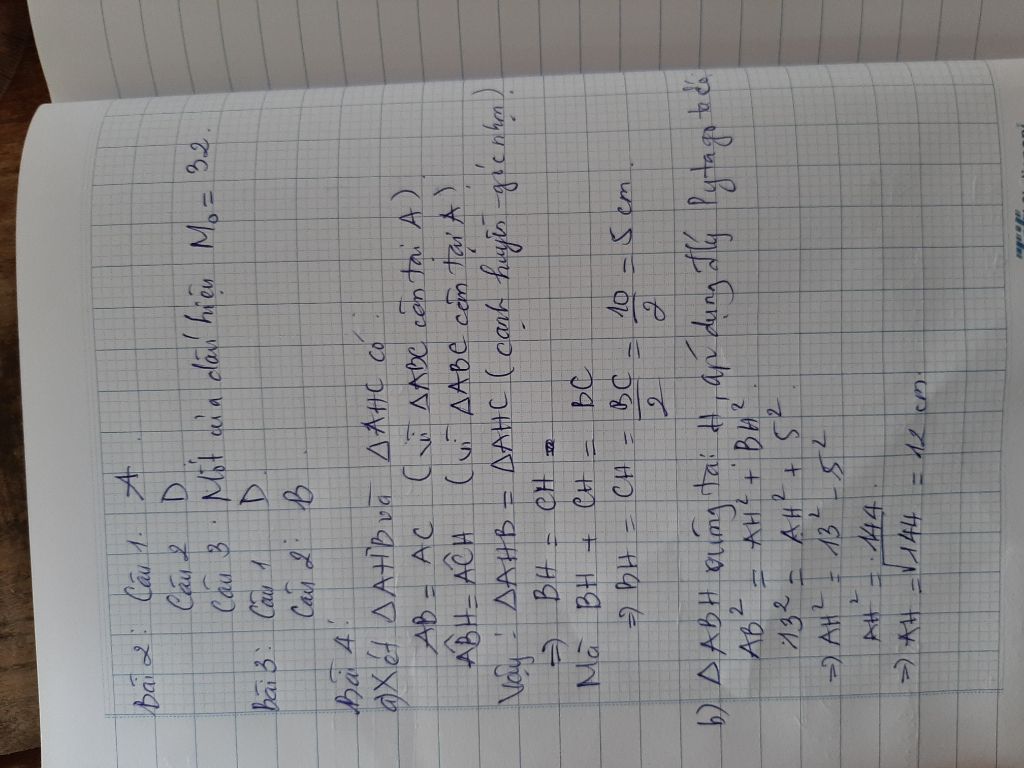 Bài 2: Câu 1. A.
Câu 2 D
Câu 3. Mốt của dấu hiệu M₀ = 32.
Bài 3: Câu 1 D
Câu 2: B
Bài 4:
a) Xét ΔAHB và ΔAHC có:
AB = AC (vì ΔABC cân tại A)
ABH = ACH (vì ΔABC cân tại A)
Vậy: ΔAHB = ΔAHC (cạnh huyền - góc nhọn).
⇒ BH = CH
Mà BH + CH = BC
⇒ BH = CH = BC/2 = 10/2 = 5 cm.
b) ΔABH vuông tại H, áp dụng Đlý Pytago ta có:
AB² = AH² + BH².
13² = AH² + 5²
⇒ AH² = 13² - 5²
AH² = 144.
⇒ AH = √144 = 12 cm.